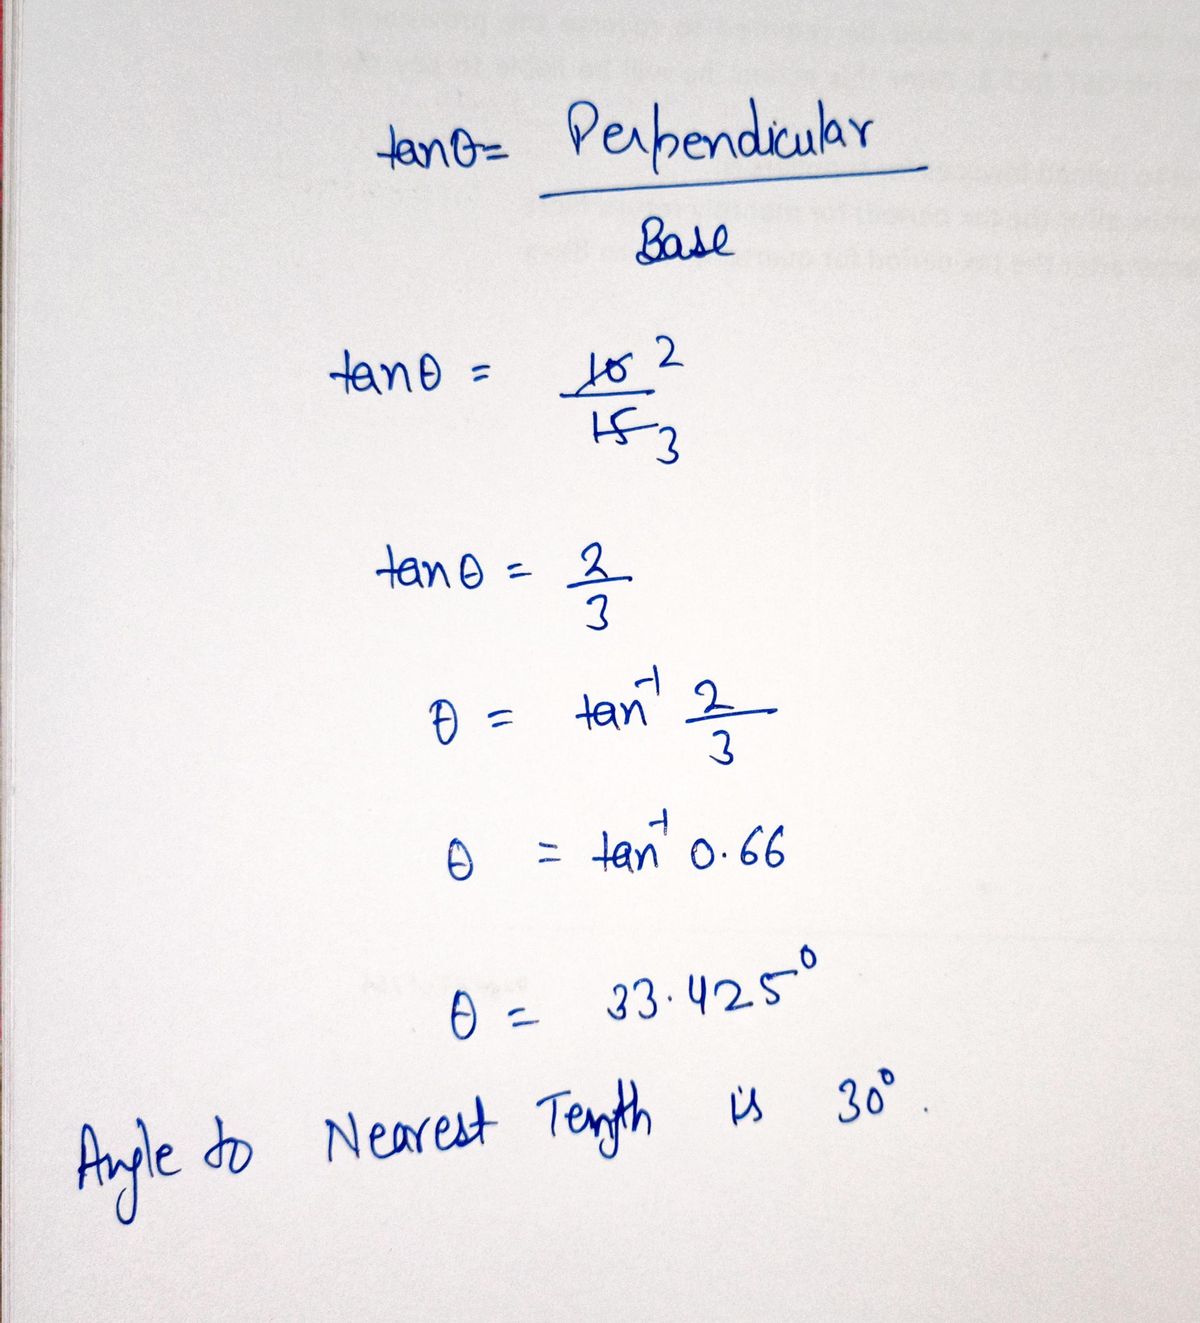 tanθ = Perpendicular
Base
tanθ = 10 2
15 3
tanθ = 2
3
θ = tan⁻¹ 2
3
θ = tan⁻¹ 0.66
θ = 33.425⁰
Angle to Nearest Tength is 30⁰.